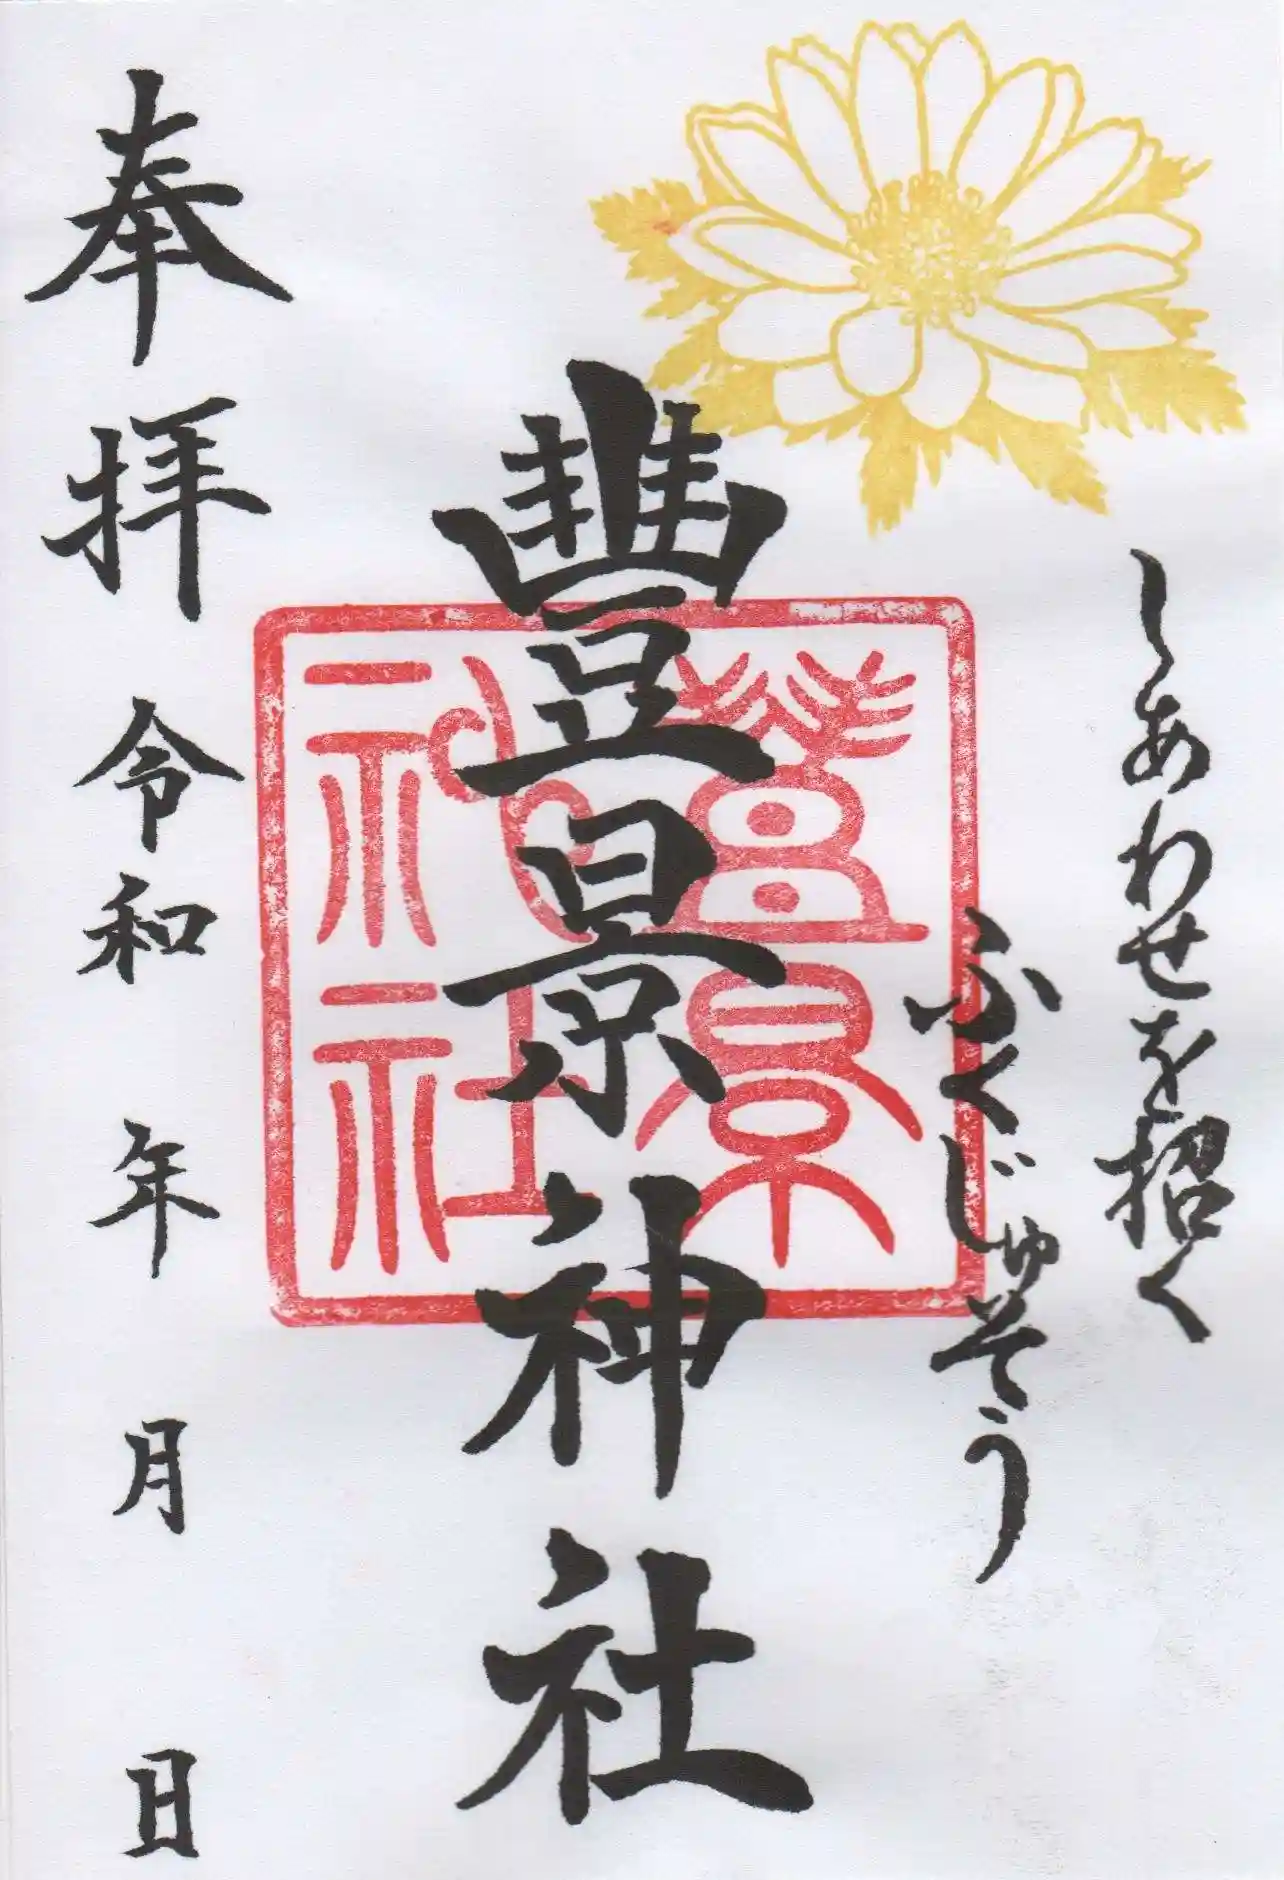 しあわせを招く
ふくじゅそう
豐景神社
豊景
神社
奉拝
令和 年 月 日